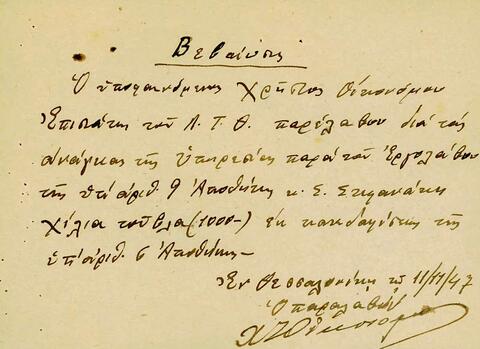 Βεβαίωσις
Ὁ ὑποφαινόμενος Χρῆστος Οἰκονόμου
Ἐπιστάτης τοῦ Λ.Τ.Θ. παρέλαβον διά τάς
ἀνάγκας τῆς Ὑπηρεσίας παρά τοῦ Ἐργολάβου
τῆς ὑπ' ἀριθ. 9 Ἀποθήκης κ. Σ. Στεφανάκη
Χίλια τοῦβλα (1000-) ἐκ κατεδαφίσεως τῆς
ὑπ' ἀριθ. 6 Ἀποθήκης-
Ἐν Θεσσαλονίκῃ τῇ 11/11/47
Ὁ παραλαβών
Χ Οἰκονόμου